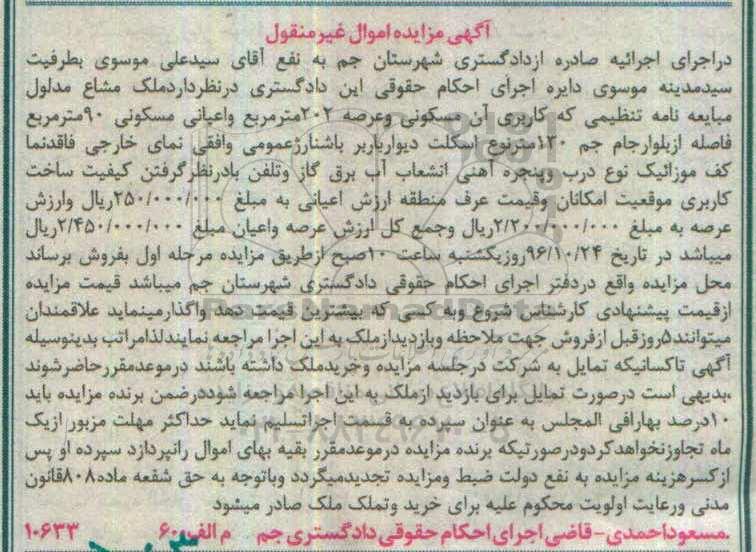 آگهی مزایده اموال غیرمنقول
دراجرای اجرائیه صادره ازدادگستری شهرستان جم به نفع آقای سیدعلی موسوی بطرفیت
سیدمدینه موسوی دایره اجرای احکام حقوقی این دادگستری درنظرداردملک مشاع مدلول
مبایعه نامه تنظیمی که کاربری آن مسکونی وعرصه ۲۰۲مترمربع واعیانی مسکونی ۹۰مترمربع
فاصله ازبلوارجام جم ۱۲۰مترنوع اسکلت دیوارباربر باشناژعمومی وافقی نمای خارجی فاقدنما
کف موزائیک نوع درب وپنجره آهنی انشعاب آب برق گاز وتلفن بادرنظرگرفتن کیفیت ساخت
کاربری موقعیت امکانان وقیمت عرف منطقه ارزش اعیانی به مبلغ ۲۵۰/۰۰۰/۰۰۰ریال وارزش
عرصه به مبلغ ۲/۲۰۰/۰۰۰/۰۰۰ریال وجمع کل ارزش عرصه واعیان مبلغ ۲/۴۵۰/۰۰۰/۰۰۰ریال
میباشد در تاریخ ۹۶/۱۰/۲۴روزیکشنبه ساعت ۱۰صبح ازطریق مزایده مرحله اول بفروش برساند
محل مزایده واقع دردفتر اجرای احکام حقوقی دادگستری شهرستان جم میباشد قیمت مزایده
ازقیمت پیشنهادی کارشناس شروع وبه کسی که بیشترین قیمت دهد واگذارمینماید علاقمندان
میتوانند۵روزقبل ازفروش جهت ملاحظه وبازدیدازملک به این اجرا مراجعه نمایندلذامراتب بدینوسیله
آگهی تاکسانیکه تمایل به شرکت درجلسه مزایده وخریدملک داشته باشند درموعدمقررحاضرشوند
،بدیهی است درصورت تمایل برای بازدید ازملک به این اجرا مراجعه شوددرضمن برنده مزایده باید
۱۰درصد بهارافی المجلس به عنوان سپرده به قسمت اجراتسلیم نماید حداکثر مهلت مزبور ازیک
ماه تجاوزنخواهدکردودرصورتیکه برنده مزایده درموعدمقرر بقیه بهای اموال رانپردازد سپرده او پس
ازکسرهزینه مزایده به نفع دولت ضبط ومزایده تجدیدمیگردد وباتوجه به حق شفعه ماده۸۰۸قانون
مدنی ورعایت اولویت محکوم علیه برای خرید وتملک ملک صادر میشود
.مسعوداحمدی-قاضی اجرای احکام حقوقی دادگستری جم م الف۶۰۰ ۱۰۶۳۳